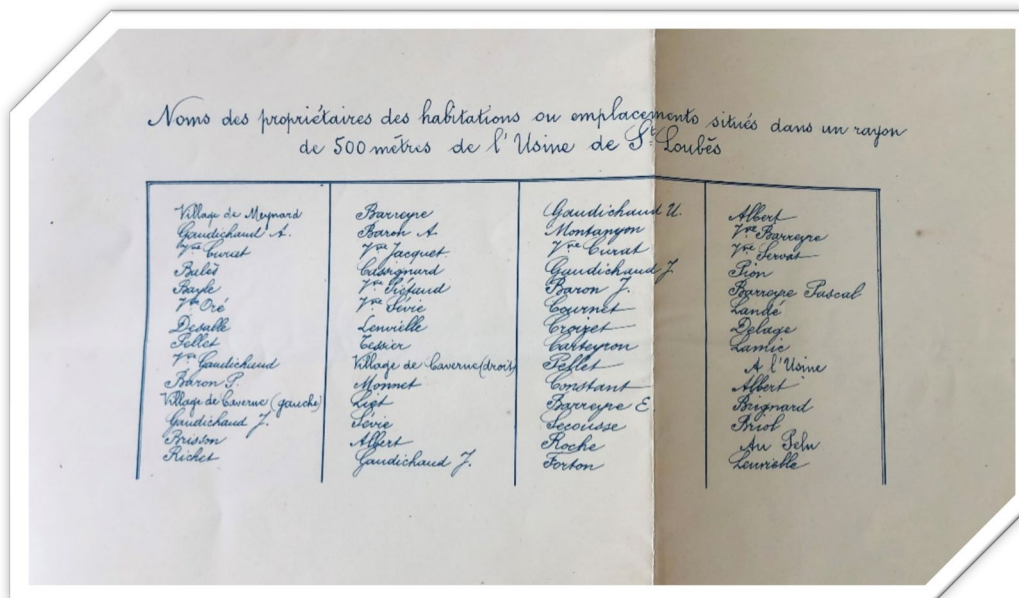 Noms des propriétaires des habitations ou emplacements situés dans un rayon
de 500 mètres de l'Usine de St Loubès
Village de Meynard
Gaudichaud A.
Vve Curat
Balès
Bayle
Vve Oré
Desalle
Pellet
Vve Gaudichaud
Baron P.
Village de Caverne (gauche)
Gaudichaud J.
Brisson
Richet
Barreyre
Baron A
Vve Jacquet
Vve
Vve Sévie
Lenvielle
Tessier
Village de Caverne (droit)
Monnet
Liet
Sévie
Albert
Gaudichaud J.
Gaudichaud U.
Montanyon
Vve Curat
Gaudichaud J.
Baron J.
Cournet
Croizet
Carteyron
Pellet
Constant
Barreyre E
Secousse
Roche
Forton
Albert
Vve Barreyre
Vve Servat
Pion
Barreyre Pascal
Landé
Delage
Lamic
A l'Usine
Albert
Brignard
Briol
Au
Lenvielle